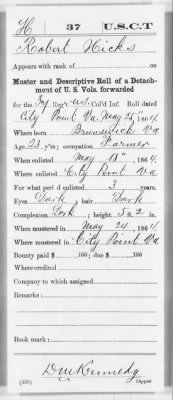 H | 37 | U.S.C.T
Robert Hicks
Appears with rank of on
Muster and Descriptive Roll of a Detach-
ment of U. S. Vols. forwarded
for the 37 Reg't U.S. Col'd Inf. Roll dated
City Point Va. May 25, 1864.
Where born Brunswick Va
Age 23 y'rs; occupation Farmer
When enlisted May 18", 1864.
Where enlisted City Point Va
For what period enlisted 3 years.
Eyes Dark; hair Dark
Complexion Dark; height 5 ft. 2 in.
When mustered in May 24, 1864.
Where mustered in City Point Va
Bounty paid $ 100; due $ 100
Where credited
Company to which assigned
Remarks:
Book mark:
DM Kennedy
(339) Copyist.